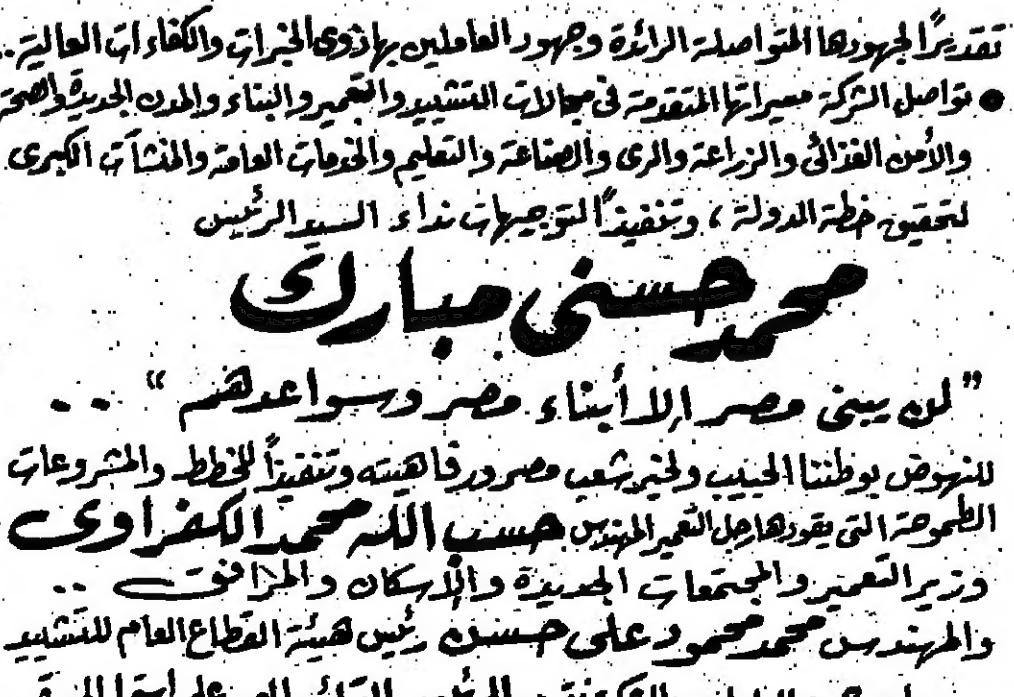 تقديرًا لجهودها المتواصلة الرائدة وجهود العاملين بها ذوى الخبرات والكفاءات العالية ..
● تواصل الشركة مسيراتها المتقدمة فى مجالات التشييد والتعمير والبناء والمدن الجديدة والصحة
والأمن الغذائى والزراعة والرى والصناعة والتعليم والخدمات العامة والمنشآت الكبرى
لتحقيق خطة الدولة ، وتنفيذًا لتوجيهات نداء السيد الرئيس
محمد حسنى مبارك
" لن يبنى مصر إلا أبناء مصر وسواعدهم " ..
للنهوض بوطننا الحبيب ولخير شعب مصر ورفاهيته وتنفيذًا للخطط والمشروعات
الطموحة التى يقودها رجل التعمير المهندس حسب الله محمد الكفراوى
وزير التعمير والمجتمعات الجديدة والإسكان والمرافق ..
والمهندس محمد محمود على حسن رئيس هيئة القطاع العام للتشييد